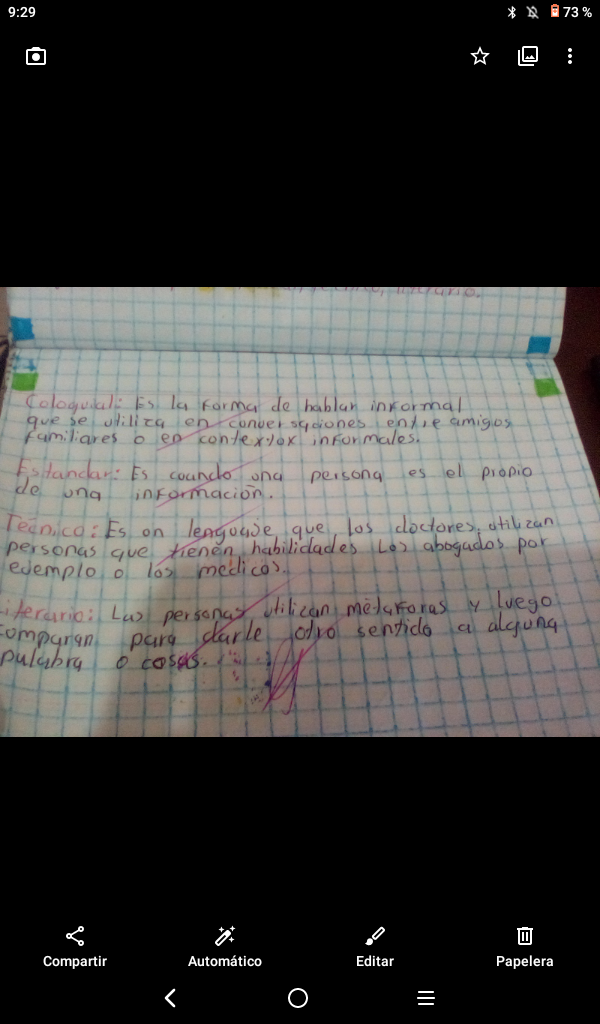 9:29
73 %
literario.
Coloquial: Es la forma de hablar informal
que se utiliza en conversaciones entre amigos
familiares o en contextox informales.
Estandar: Es cuando una persona es el propio
de una información.
Tecnico: Es on lenguaje que los doctores, utilizan
personas que tienen habilidades Los abogados por
ejemplo o los medicos.
iterario: Las personas utilizan metaforas y luego
comparan para darle otro sentido a alguna
palabra o cosas.
Compartir
Automático
Editar
Papelera